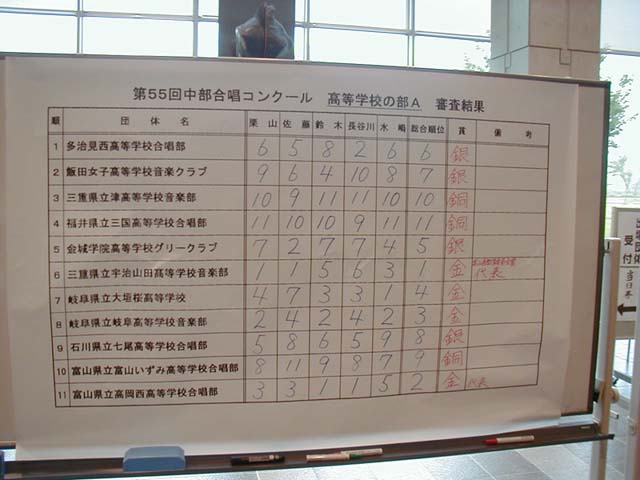 第55回中部合唱コンクール 高等学校の部A 審査結果
順 団体名 栗山 佐藤 鈴木 長谷川 水嶋 総合順位 賞 備考
1 多治見西高等学校合唱部 6 5 8 2 6 6 銀
2 飯田女子高等学校音楽クラブ 9 6 4 10 8 7 銀
3 三重県立津高等学校音楽部 10 9 11 11 10 10 銅
4 福井県立三国高等学校合唱部 11 10 10 9 11 11 銅
5 金城学院高等学校グリークラブ 7 2 7 7 4 5 銀
6 三重県立宇治山田高等学校音楽部 1 1 5 6 3 1 金 代表
7 岐阜県立大垣桜高等学校 4 7 3 3 1 4 金
8 岐阜県立岐阜高等学校音楽部 2 4 2 4 2 3 金
9 石川県立七尾高等学校合唱部 5 8 6 5 9 8 銀
10 富山県立富山いずみ高等学校合唱部 8 11 9 8 7 9 銅
11 富山県立高岡西高等学校合唱部 3 3 1 1 5 2 金 代表
出場団体
受付
当日券